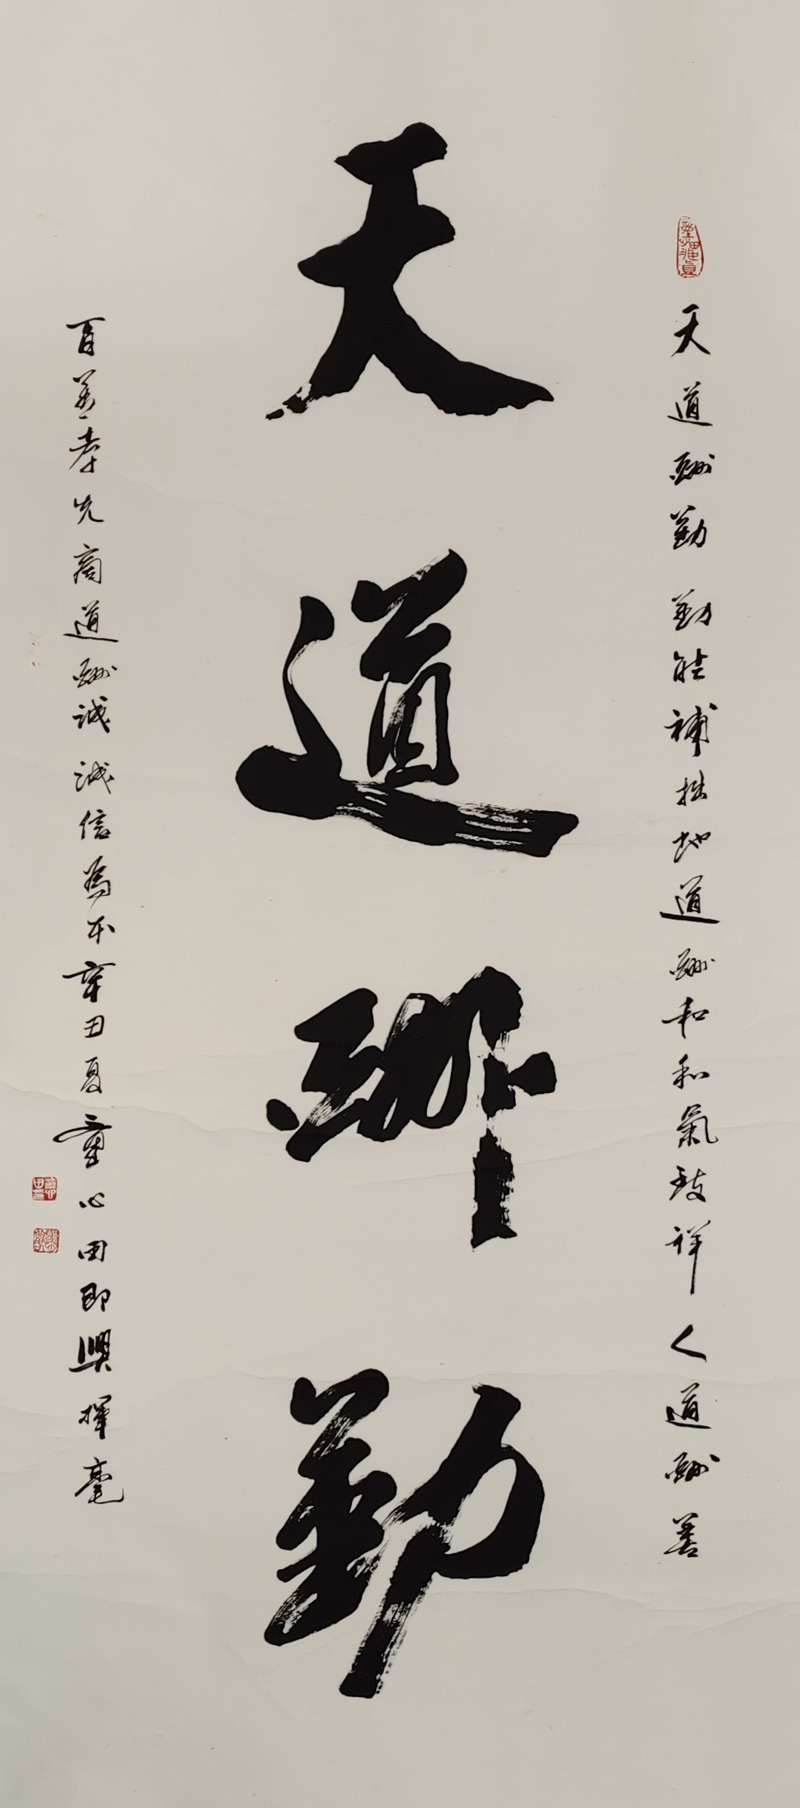 天道酬勤勤能補拙地道酬和和氣致祥人道酬善
天道酬勤
百善孝先商道酬誠誠信為本辛丑夏童心田即興揮毫